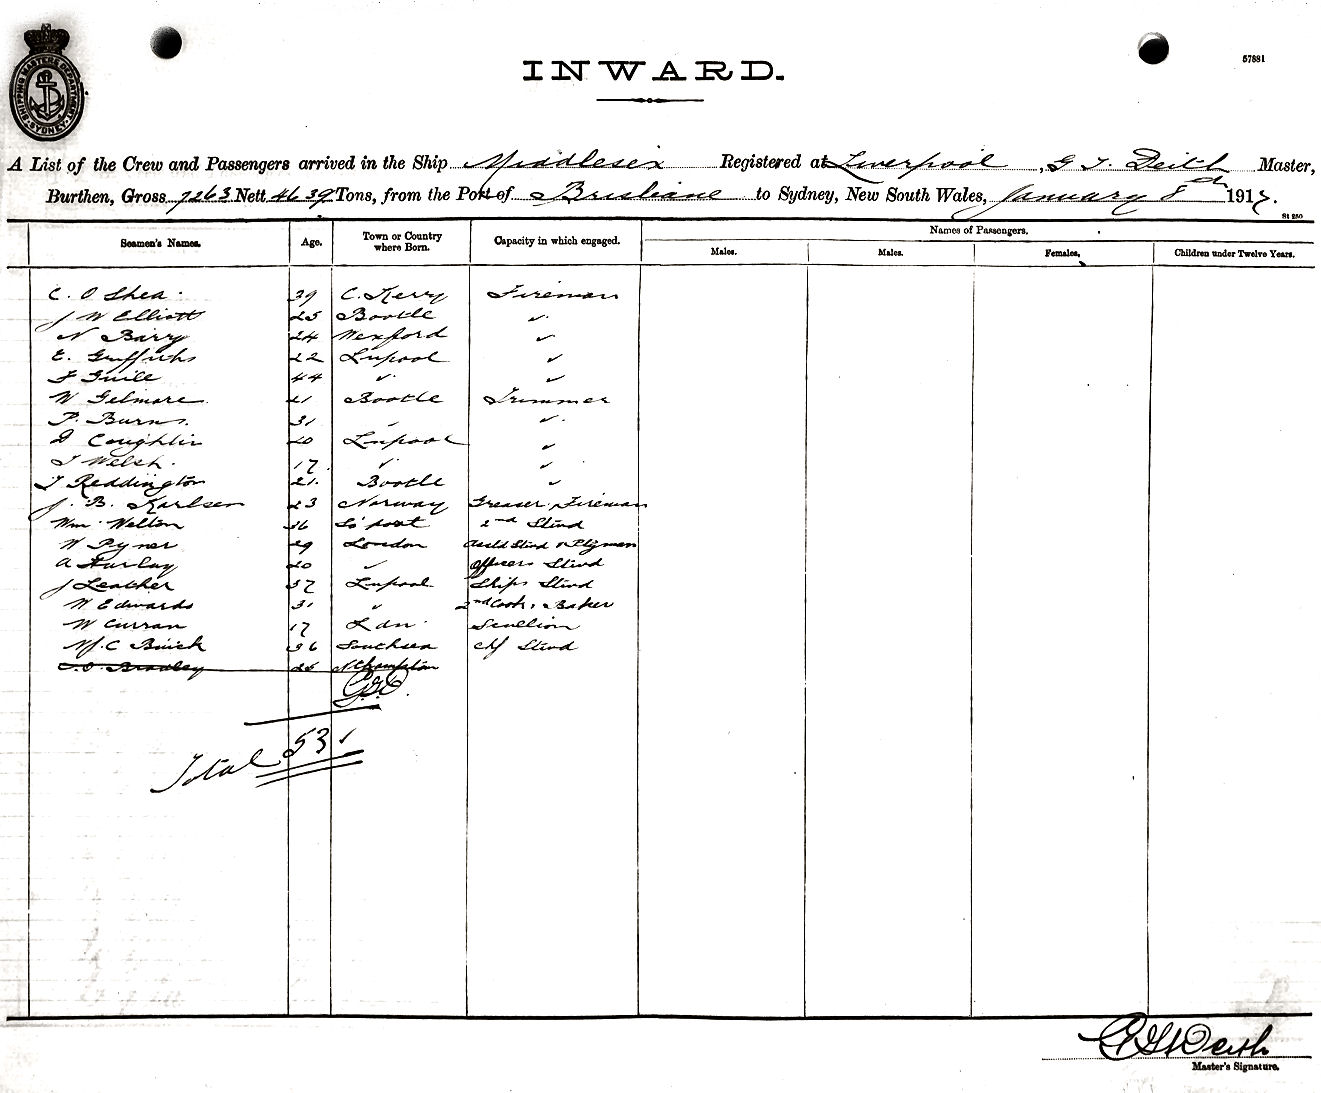 SHIPPING MASTERS DEPARTMENT SYDNEY
57881
INWARD.
A List of the Crew and Passengers arrived in the Ship Middlesex Registered at Liverpool, G T. Deith Master,
Burthen, Gross 7263 Nett 4639 Tons, from the Port of Brisbane to Sydney, New South Wales, January 8 1917.
S1 250
Seamen's Names. Age. Town or Country where Born. Capacity in which engaged. Names of Passengers.
Males. Males. Females. Children under Twelve Years.
C. O Shea 39 C. Kerry Fireman
J W Elliott 25 Bootle "
N Barry 24 Wexford "
E. Griffiths 22 Lnpool "
F Guile 44 " "
W Gilmore 21 Bootle Trimmer
P. Burns. 31 " "
D Coughlin 20 Lnpool "
T Welsh. 17 " "
T Reddington 21. Bootle "
J. B. Karlsen 23 Norway Greaser Fireman
Wm. Welton 36 2nd Stwd
W Pyner 29 London
A Hurlay 20 " Officers Stwd
J Leather 37 Lnpool Ships Stwd
W Edwards 31 " 2nd Cook & Baker
W Curran 17 Scullion
C Buick 36 Southsea Chf Stwd
Bradley 25 N'hampton
Total 53
G T Deith
Master's Signature.